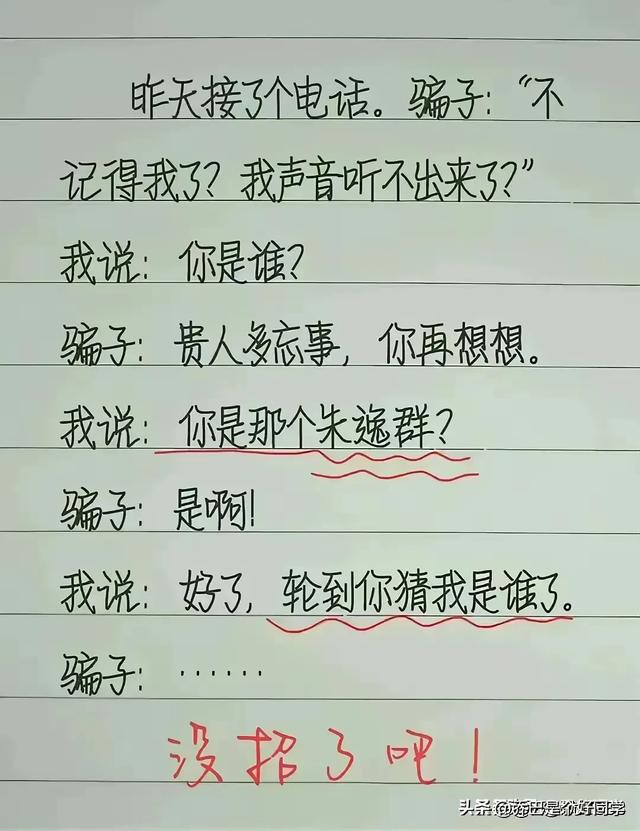 昨天接了个电话。骗子：“不
记得我了？我声音听不出来了？”
我说：你是谁？
骗子：贵人多忘事，你再想想。
我说：你是那个朱逸群？
骗子：是啊！
我说：好了，轮到你猜我是谁了。
骗子：……
没招了吧！
头条